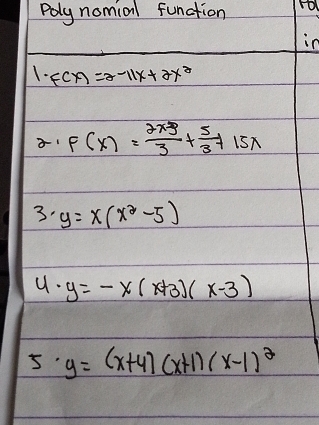 Polynomial Function
in
1. F(x) = 2-11x+2x²
2. F(x) = 2x3/3 + 5/3 + 15x
3. y = x(x²-5)
4. y = -x(x+3)(x-3)
5. y = (x+4)(x+1)(x-1)²